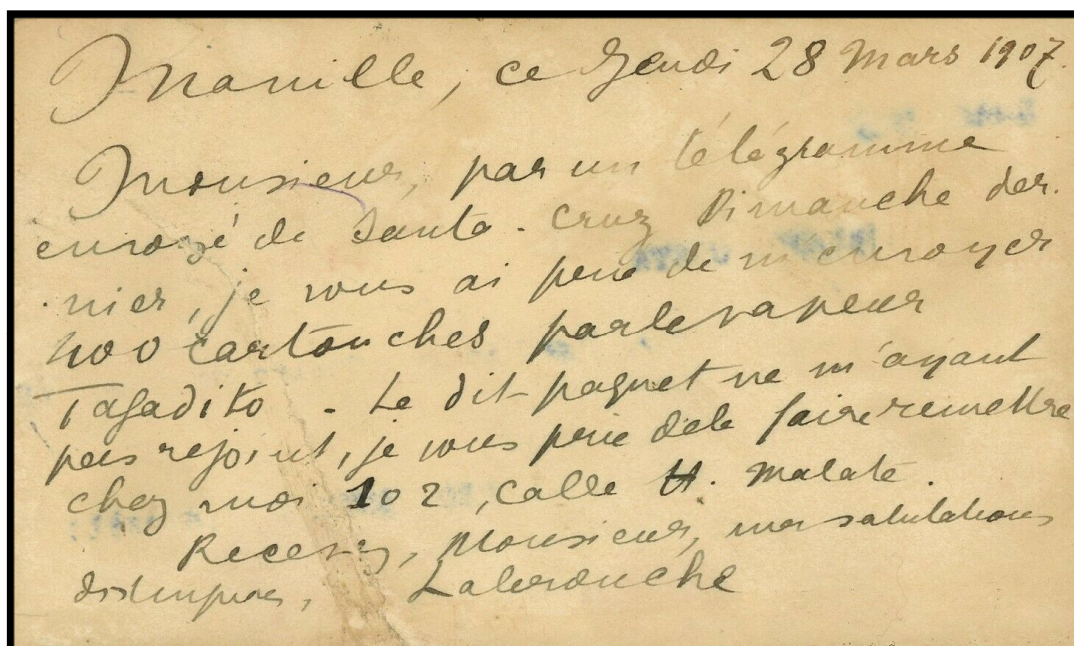 Manille, ce Jeudi 28 Mars 1907.
Monsieur, par un télégramme
envoyé de Santa-Cruz Dimanche der-
nier, je vous ai prié de m'envoyer
400 cartouches par le vapeur
Tagadito. Le dit paquet ne m'ayant
pas rejoint, je vous prie de le faire remettre
chez moi 102, Calle H. Malate.
Recevez, Monsieur, mes salutations
distinguées,